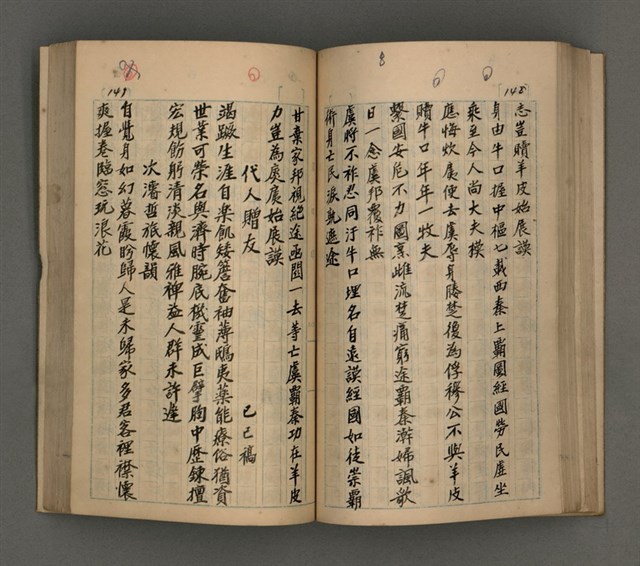 148
志豈贖羊皮始展謨
身由牛口握中樞七載西秦上霸圖經國勞民虛坐
乘至今人尚大夫模
應悔炊扊便去虞辱身勝楚後為俘穆公不與羊皮
贖牛口年年一牧夫
繫國安危不力圖烹雌流楚痛窮途霸秦澣婦諷歌
日一念虞邦覆祚無
虞將不祚忍同汙牛口埋名自遠謨經國如徒崇霸
術身亡民淚執進途
8
149
甘棄家邦視絕途函關一去等亡虞霸秦功在羊皮
力豈為虞虞始展謨
代人贈友 己巳稿
竭蹶生涯自樂飢矮簷奮袖薄鴟夷藥能療俗猶資
世業可榮名與濟時腕底機靈成巨擘胸中歷鍊擅
宏規飭躬清淡親風雅裨益人群未許遲
次濬哲旅懷韻
自覺身如幻暮霞盻歸人是未歸家多君客裡襟懷
爽握卷臨窓玩浪花